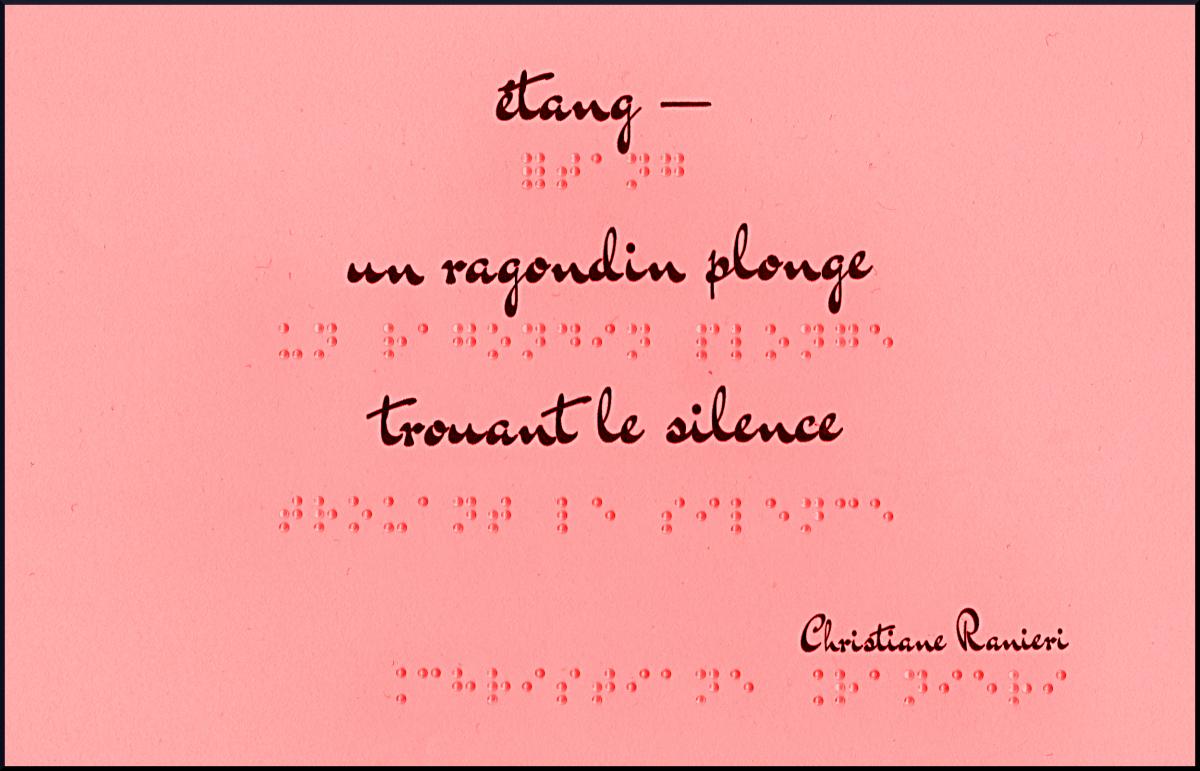 étang —
⠿⠞⠁⠝⠛
un ragondin plonge
⠥⠝ ⠗⠁⠛⠕⠝⠙⠊⠝ ⠏⠇⠕⠝⠛⠑
trouant le silence
⠞⠗⠕⠥⠁⠝⠞ ⠇⠑ ⠎⠊⠇⠑⠝⠉⠑
Christiane Ranieri
⠨⠉⠓⠗⠊⠎⠞⠊⠁⠝⠑ ⠨⠗⠁⠝⠊⠑⠗⠊